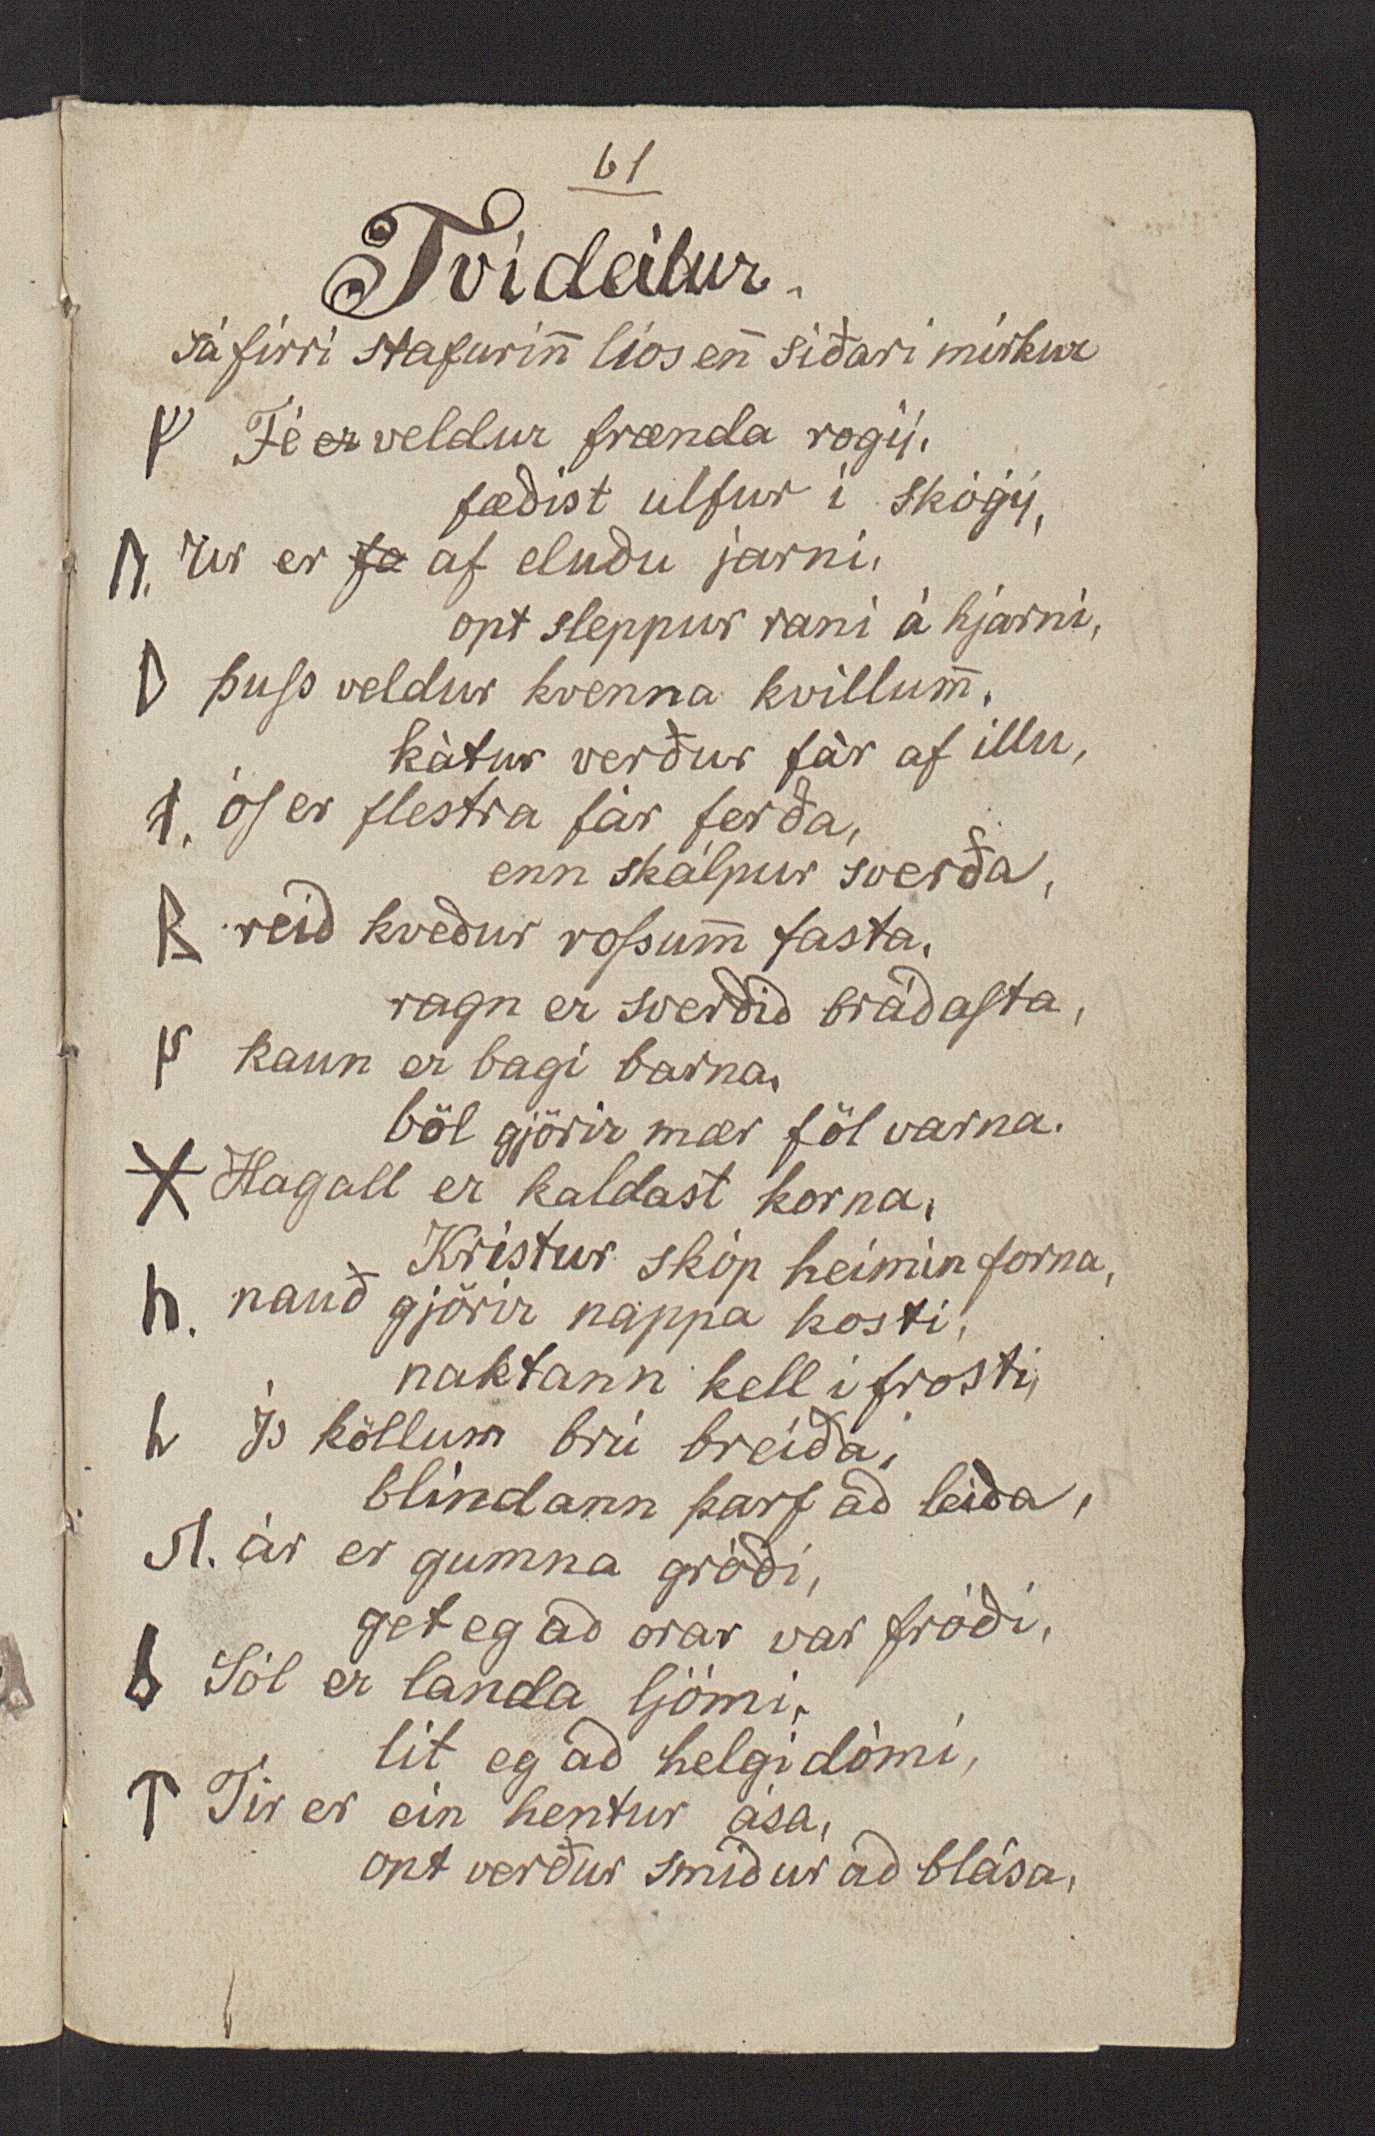 61
Tvídeilur.
Sá firri stafurin̄ líos en̄ síðari mirkur
ᚠ Fé er veldur frænda rogij,
fæðist ulfur í skógij,
ᚢ. Ur er af eluðu jarni,
opt sleppur rani á hjarni,
ᚦ þuſs veldur kvenna kvillum̄,
kátur verður fár af illu,
ᚬ. óſ er flestra fár ferða,
enn skálpur sverða,
ᚱ reið kveður roſsum̄ fasta,
ragn er sverðið bráðaſta,
ᚴ kaun er bagi barna,
böl gjörir mær föl varna.
ᚼ Hagall er kaldast korna,
Kristur skóp heimin forna,
h. nauð gjörir nappa kosti,
naktann kell í frosti,
h Js köllum brú breiða,
blindann þarf að leiða,
A. ár er gumna gróði,
get eg að orar var fróði,
b Sól er landa ljómi,
lít eg að helgidómi,
ᛏ Tír er ein hentur ása,
opt verður smiður að blása,